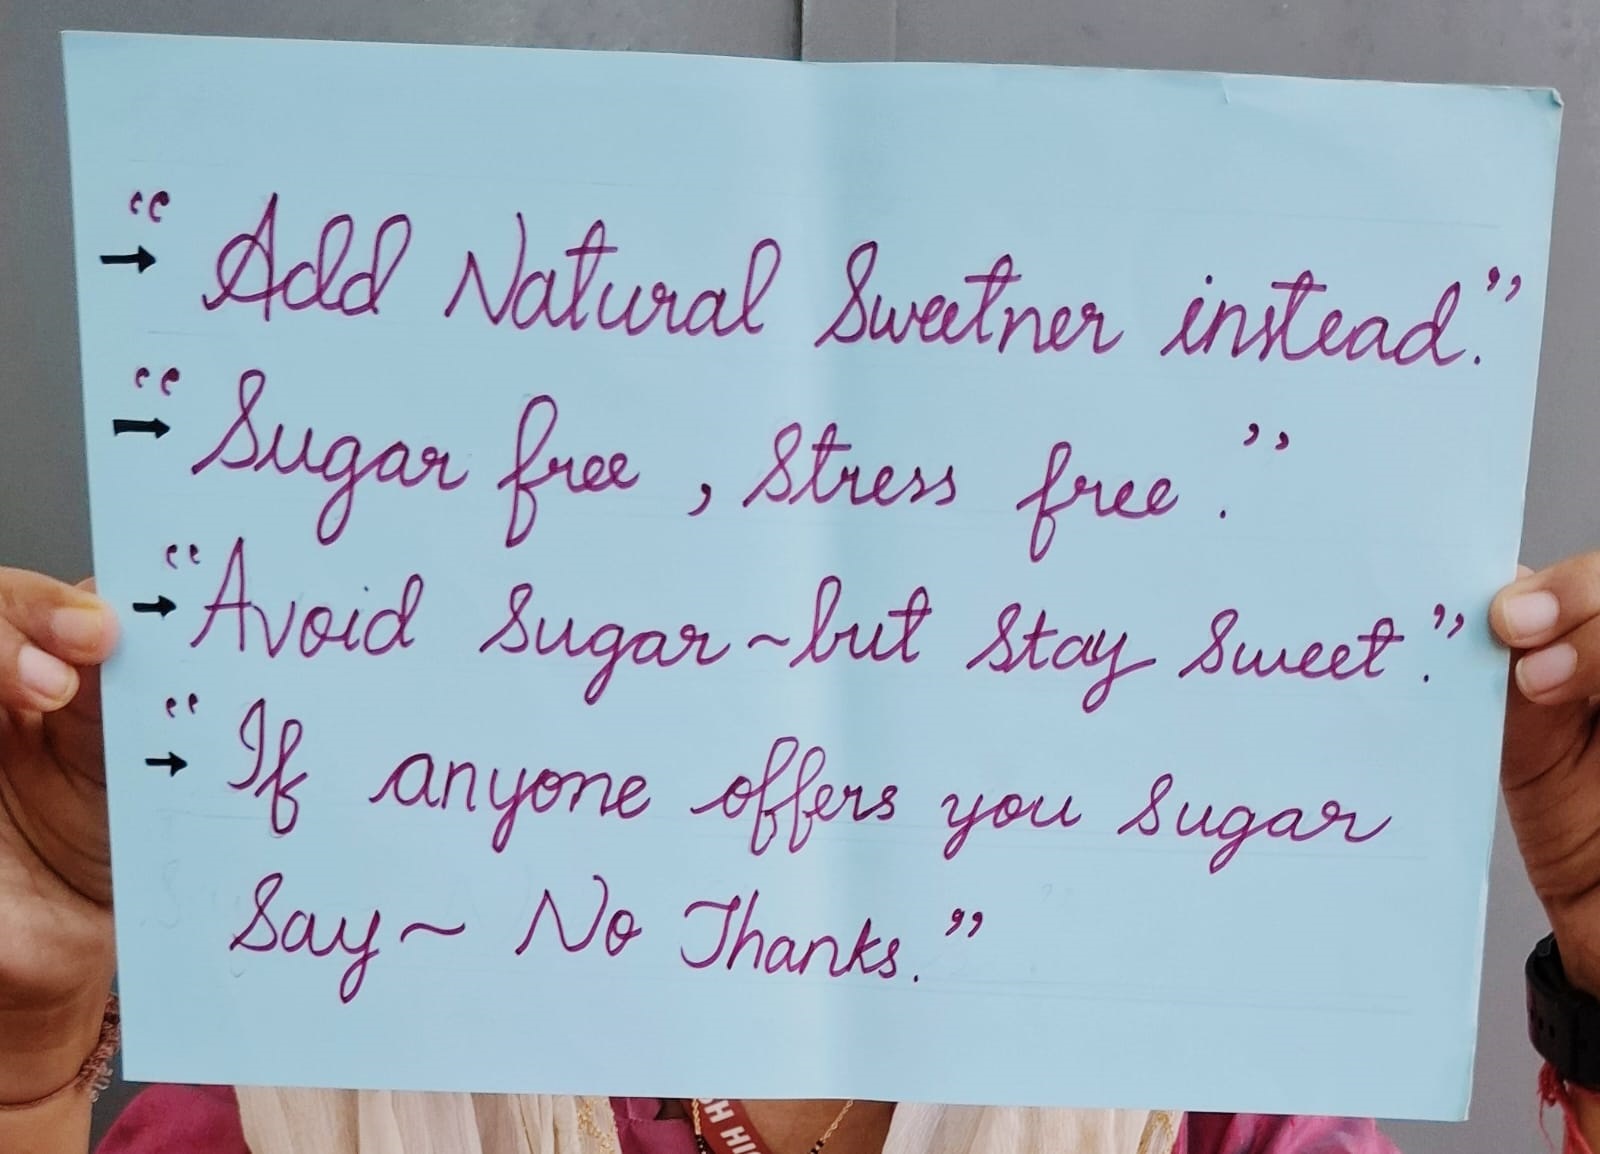 → “Add Natural Sweetner instead.”
→ “Sugar free, Stress free.”
→ “Avoid Sugar~but Stay Sweet.”
→ “If anyone offers you Sugar
Say~ No Thanks.”